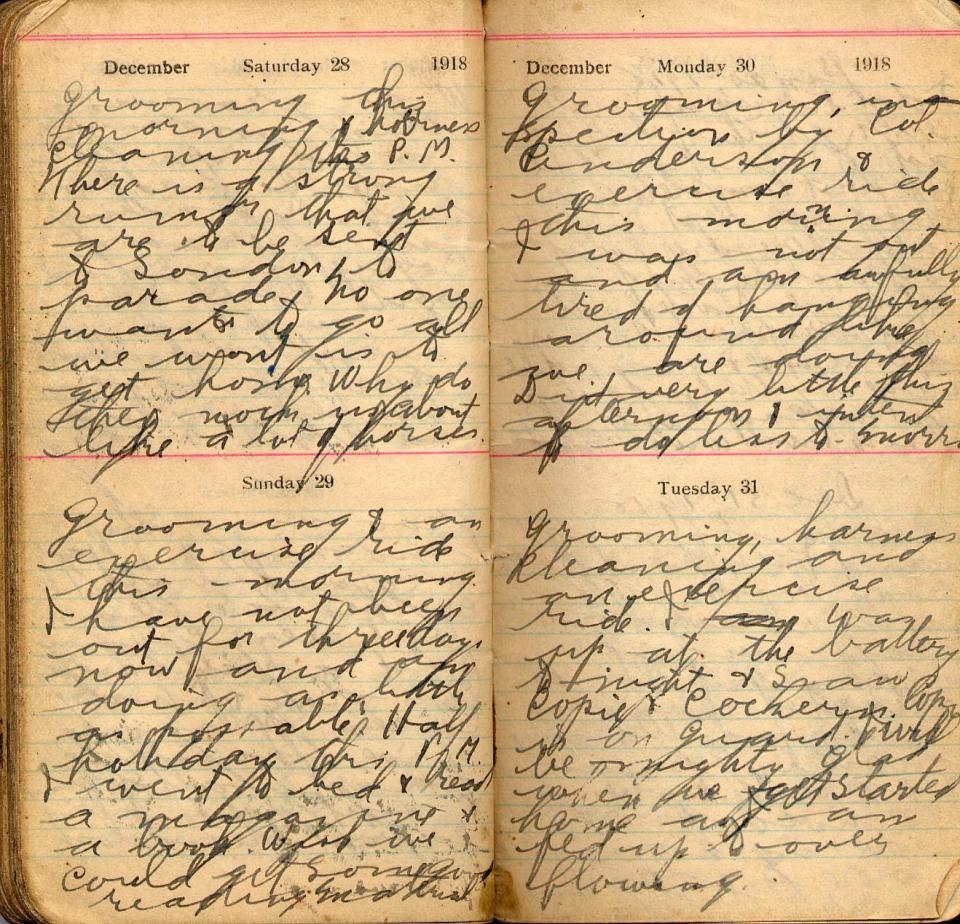 December Saturday 28 1918
Grooming this
morning & harness
cleaning this P.M.
There is a strong
rumor that we
are to be sent
to London to
parade, no one
wants to go all
we want is to
get home Why do
they work us about
like a lot of horses.
Sunday 29
Grooming & an
exercise ride
this morning
I have not been
out for three days
now and am
doing as little
as possible, Half
holiday this P.M.
I went to bed & read
a magazine &
a book. Wish we
could get some good
reading material
December Monday 30 1918
Grooming, ins
pection by Col.
Anderson &
exercise ride
this morning
I was not out
and am awfully
tired of hanging
around like
we are doing
Did very little this
afternoon & intend
to do less to-morro
Tuesday 31
Grooming, harness
cleaning and
an exercise
ride. I was
up at the battery
to night & saw
Copie & Cochern, Copie
is on guard. I will
be mighty glad
when we get started
home as am
fed up to over
flowing.